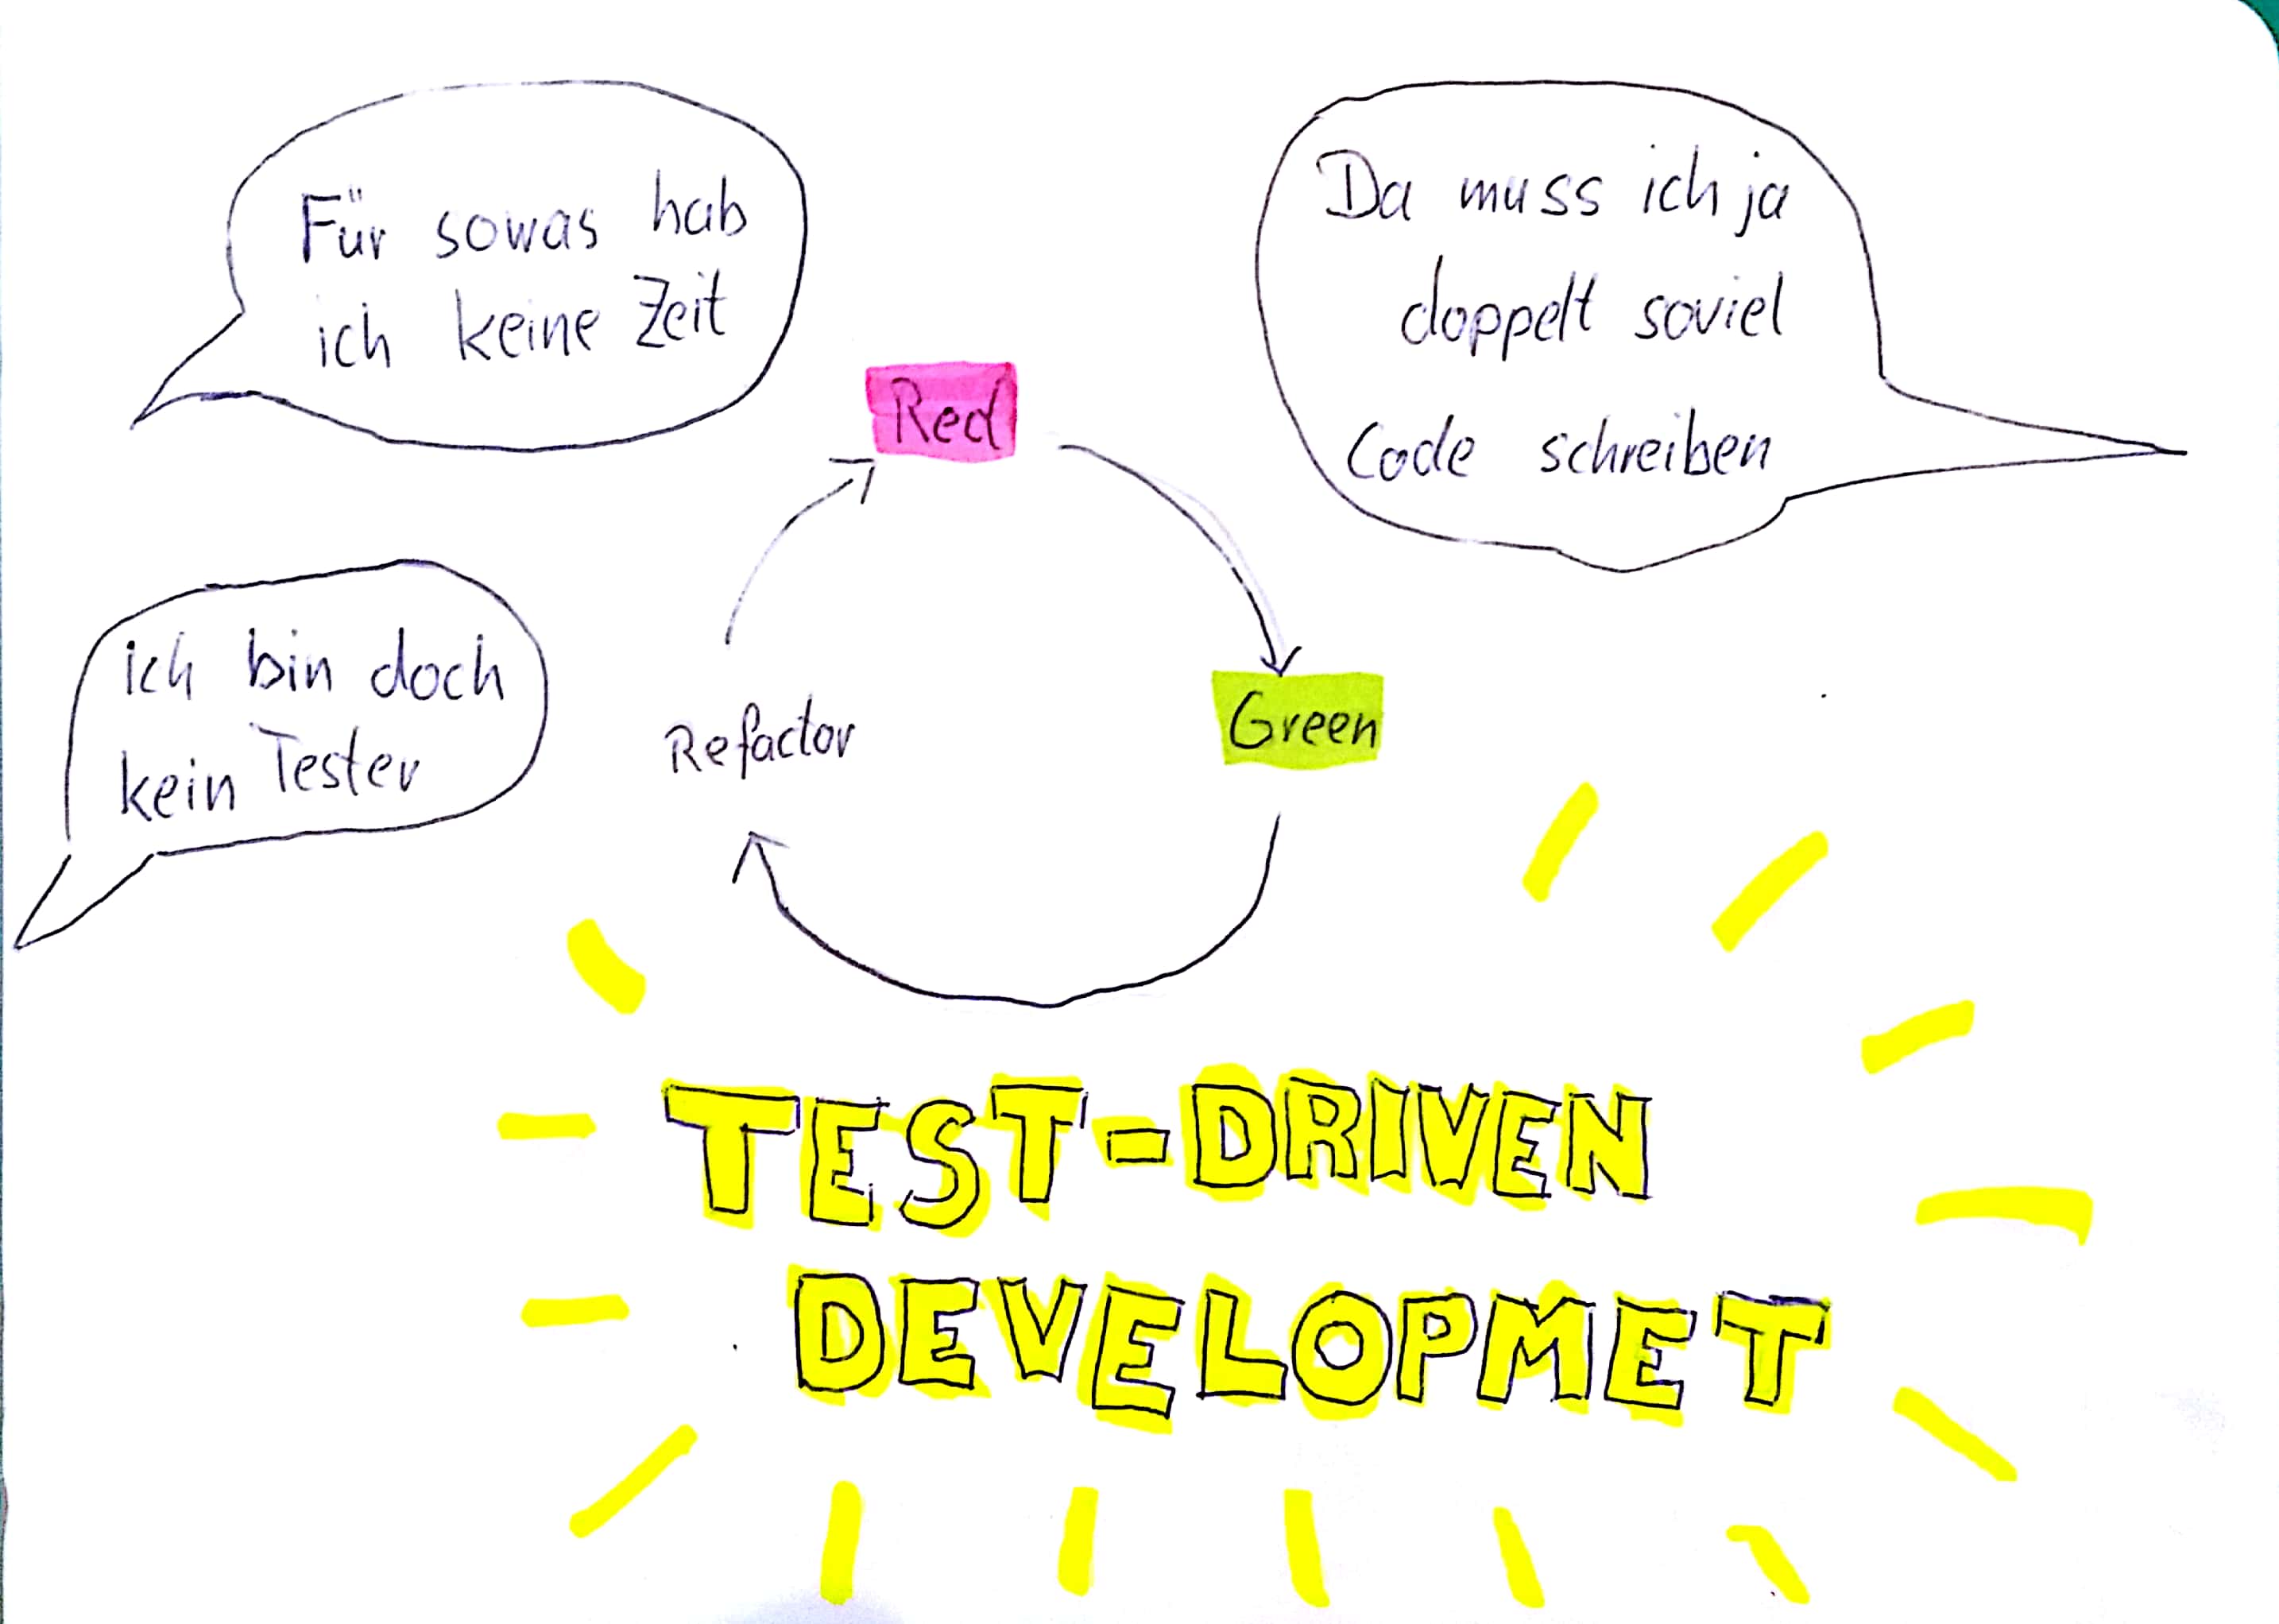 Für sowas hab
ich keine Zeit
Da muss ich ja
doppelt soviel
Code schreiben
Red
ich bin doch
kein Tester
Refactor
Green
TEST-DRIVEN
DEVELOPMET